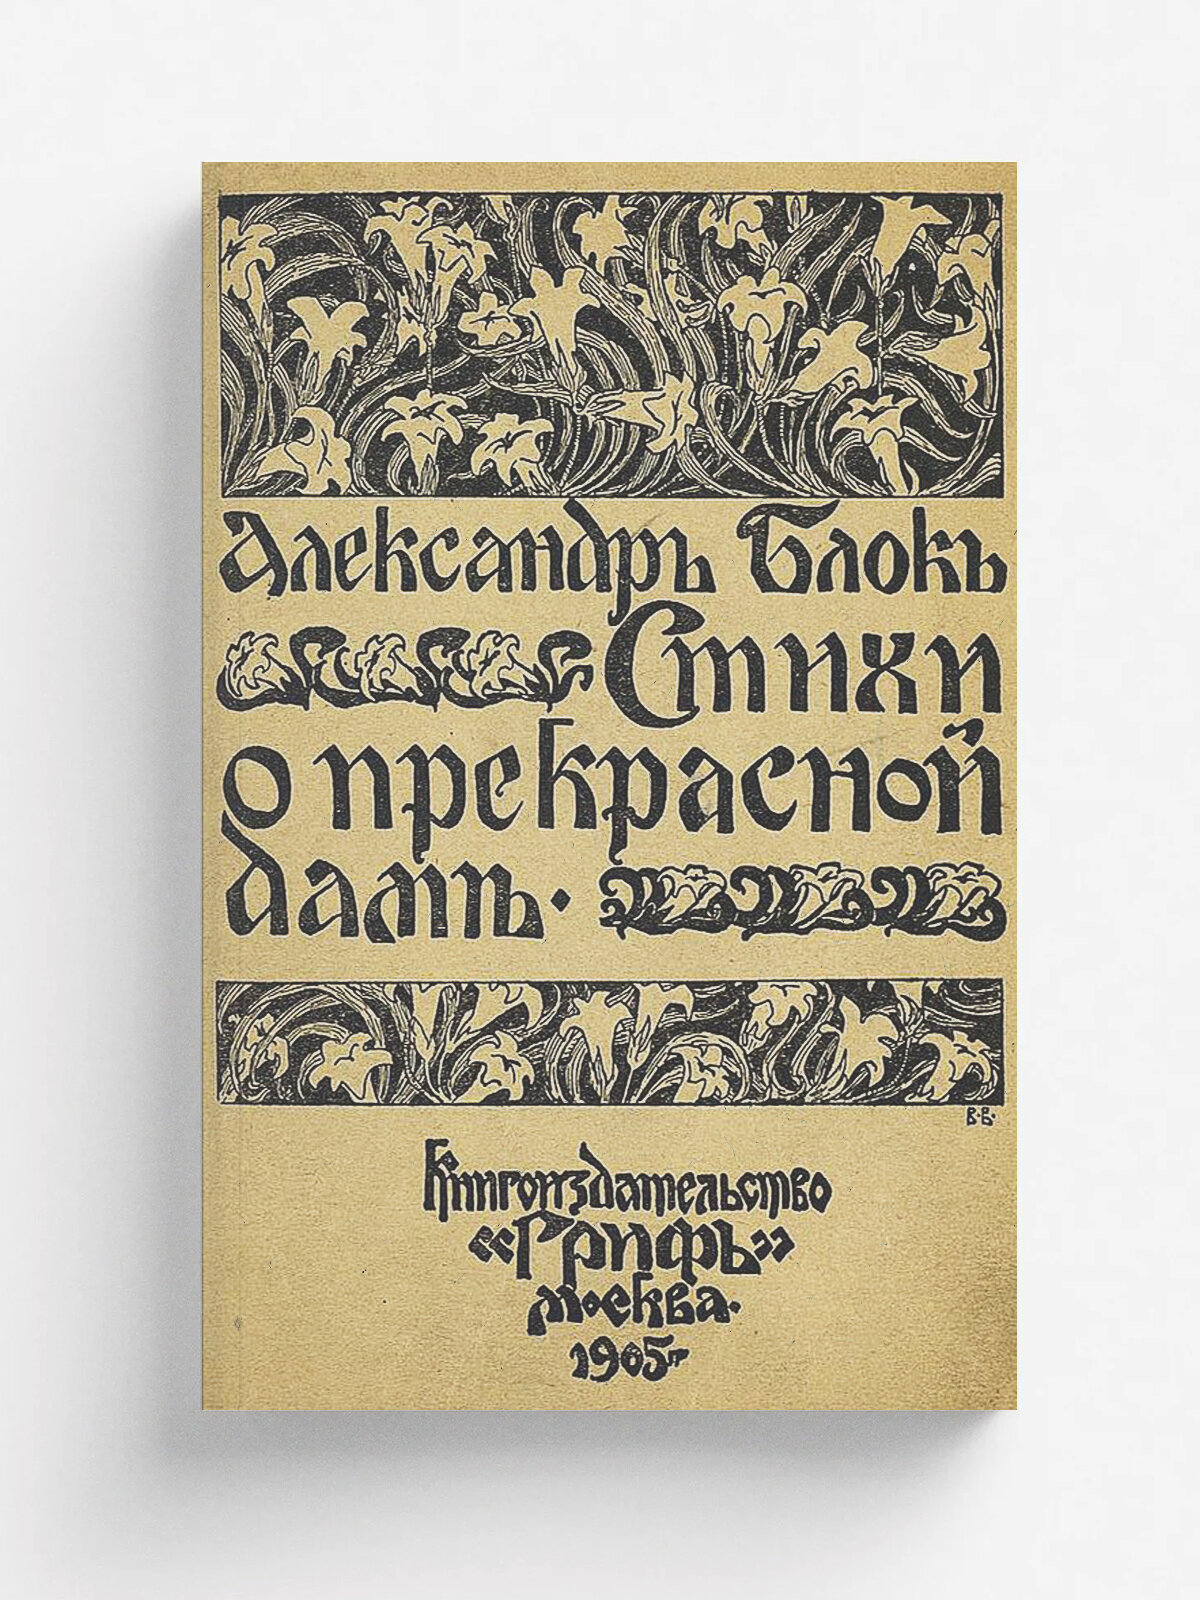 Александръ Блокъ
Стихи
о прекрасной
дамѣ.
В.В.
Книгоиздательство
«Грифъ»
Москва.
1905г